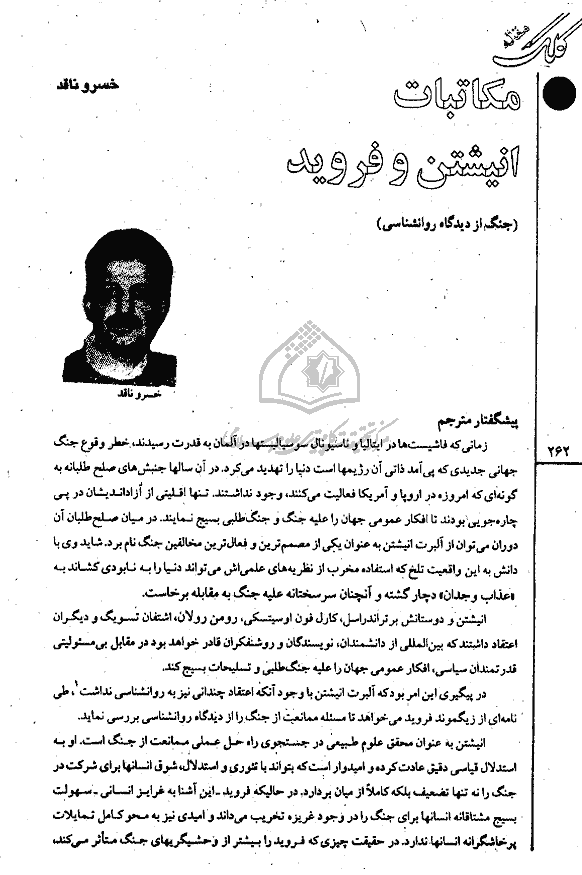 کلک
خسرو ناقد
مکاتبات
انیشتن و فروید
(جنگ از دیدگاه روانشناسی)
خسرو ناقد
پیشگفتار مترجم
زمانی که فاشیست‌ها در ایتالیا و ناسیونال سوسیالیستها در آلمان به قدرت رسیدند، خطر وقوع جنگ
۲۶۲
جهانی جدیدی که پی‌آمد ذاتی آن رژیمها است دنیا را تهدید می‌کرد. در آن سالها جنبش‌های صلح طلبانه به
گونه‌ای که امروزه در اروپا و آمریکا فعالیت می‌کنند، وجود نداشتند. تنها اقلیتی از آزاداندیشان در پی
چاره‌جویی بودند تا افکار عمومی جهان را علیه جنگ و جنگ‌طلبی بسیج نمایند. در میان صلح‌طلبان آن
دوران می‌توان از آلبرت انیشتن به عنوان یکی از مصمم‌ترین و فعال‌ترین مخالفین جنگ نام برد. شاید وی با
دانش به این واقعیت تلخ که استفاده مخرب از نظریه‌های علمی‌اش می‌تواند دنیا را به نابودی کشاند به
«عذاب وجدان» دچار گشته و آنچنان سرسختانه علیه جنگ به مقابله برخاست.
انیشتن و دوستانش برتراندراسل، کارل فون اوسیتسکی، رومن رولان، اشتفان تسویک و دیگران
اعتقاد داشتند که بین‌المللی از دانشمندان، نویسندگان و روشنفکران قادر خواهد بود در مقابل بی‌مسئولیتی
قدرتمندان سیاسی، افکار عمومی جهان را علیه جنگ‌طلبی و تسلیحات بسیج کند.
در پیگیری این امر بود که آلبرت انیشتن با وجود آنکه اعتقاد چندانی نیز به روانشناسی نداشت۱، طی
نامه‌ای از زیگموند فروید می‌خواهد تا مسئله ممانعت از جنگ را از دیدگاه روانشناسی بررسی نماید.
انیشتن به عنوان محقق علوم طبیعی در جستجوی راه حل عملی ممانعت از جنگ است. او به
استدلال قیاسی دقیق عادت کرده و امیدوار است که بتواند با تئوری و استدلال، شوق انسانها برای شرکت در
جنگ را نه تنها تضعیف بلکه کاملاً از میان بردارد. در حالیکه فروید ـ این آشنا به غرایز انسانی ـ سهولت
بسیج مشتاقانه انسانها برای جنگ را در وجود غریزه تخریب می‌داند و امیدی نیز به محو کامل تمایلات
پرخاشگرانه انسانها ندارد. در حقیقت چیزی که فروید را بیشتر از وحشیگریهای جنگ متأثر می‌کند،